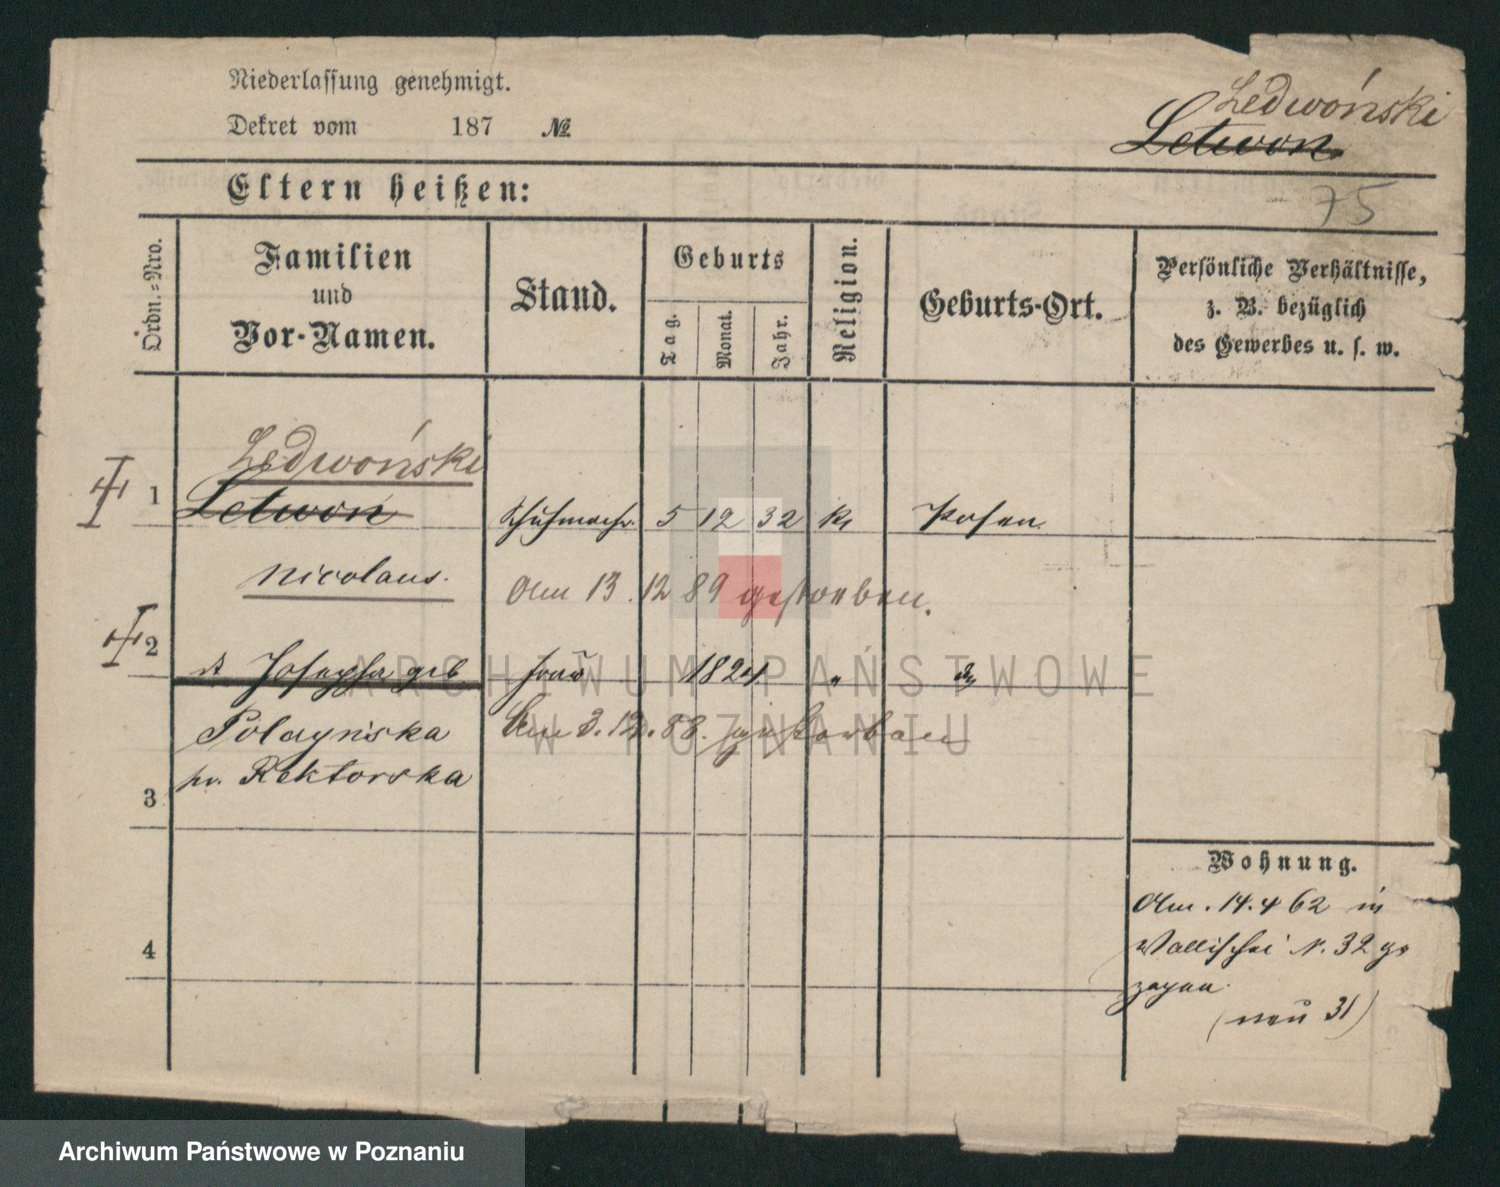 Niederlassung genehmigt.
Dekret vom 187 №
Ledwoński
Letwon
75
Eltern heißen:
Ordn.=Nro.
Familien
und
Vor-Namen.
Stand.
Geburts
Tag.
Monat.
Jahr.
Religion.
Geburts-Ort.
Persönliche Verhältnisse,
z. B. bezüglich
des Gewerbes u. s. w.
Ledwoński
1 Letwon Schuhmachr. 5 12 32 k Posen
Nicolaus.
Am 13.12 89 gestorben.
2 Josepha geb Frau 1824 "
Polczyńska
Am 3.12.88. gestorben
Rektorska
3
Wohnung.
Am. 14.4 62 in
Wallischei N. 32 ge
zogen.
(neu 31)
4
ARCHIWUM PAŃSTWOWE
W POZNANIU
Archiwum Państwowe w Poznaniu